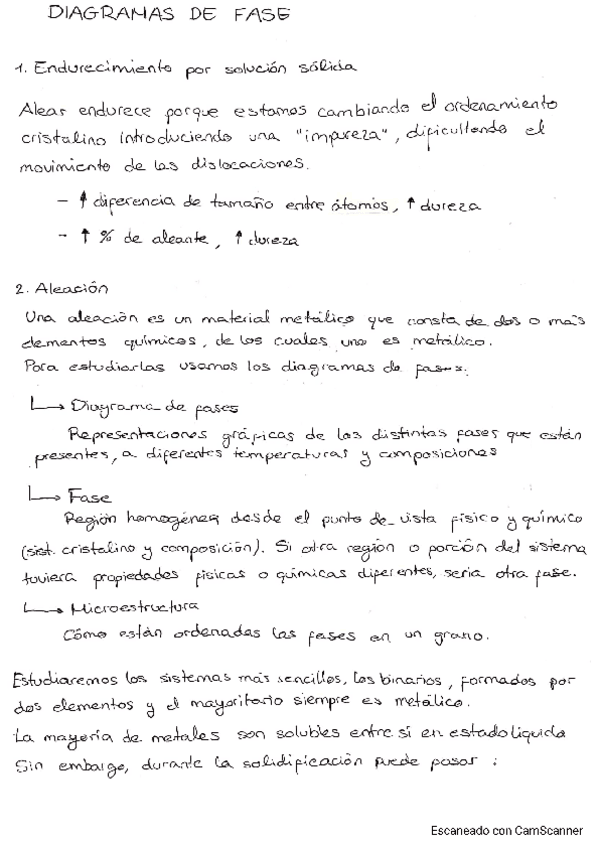 DIAGRAMAS DE FASE
1. Endurecimiento por solución sólida
Alear endurece porque estamos cambiando el ordenamiento
cristalino introduciendo una "impureza", dificultando el
movimiento de las dislocaciones.
- ↑ diferencia de tamaño entre átomos, ↑ dureza
- ↑ % de aleante, ↑ dureza
2. Aleación
Una aleación es un material metálico que consta de dos o más
elementos químicos, de los cuales uno es metálico.
Para estudiarlas usamos los diagramas de fases.
↳ Diagrama de fases
Representaciones gráficas de las distintas fases que están
presentes, a diferentes temperaturas y composiciones
↳ Fase
Región homogénea desde el punto de vista físico y químico
(sist. cristalino y composición). Si otra región o porción del sistema
tuviera propiedades físicas o químicas diferentes, seria otra fase.
↳ Microestructura
Cómo están ordenadas las fases en un grano.
Estudiaremos los sistemas más sencillos, los binarios, formados por
dos elementos y el mayoritario siempre es metálico.
La mayoría de metales son solubles entre sí en estado líquido
Sin embargo, durante la solidificación puede pasar :
Escaneado con CamScanner